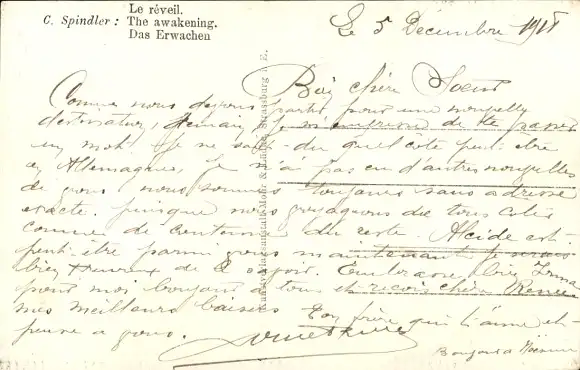 Le réveil.
C. Spindler : The awakening.
Das Erwachen
Le 5 Décembre 1918
Bien chère Soeur
Comme nous devons partir pour une nouvelle
destination, demain, je m'empresse de te passer
un mot. Je ne sais du quel côté peut-être
en Allemagne, je n'ai pas eu d'autres nouvelles
de vous nous sommes toujours sans adresse
exacte. puisque nous voyageons de tous cotés
comme de coutume du reste Alcide est
peut-être parmi vous maintenant je serais
bien Heureux de savoir. Embrasse bien Irma
pour moi bonjour à tous et reçois chère
mes meilleurs baisers Ton frère qui t'aime et
pense a vous.
Bonjour a